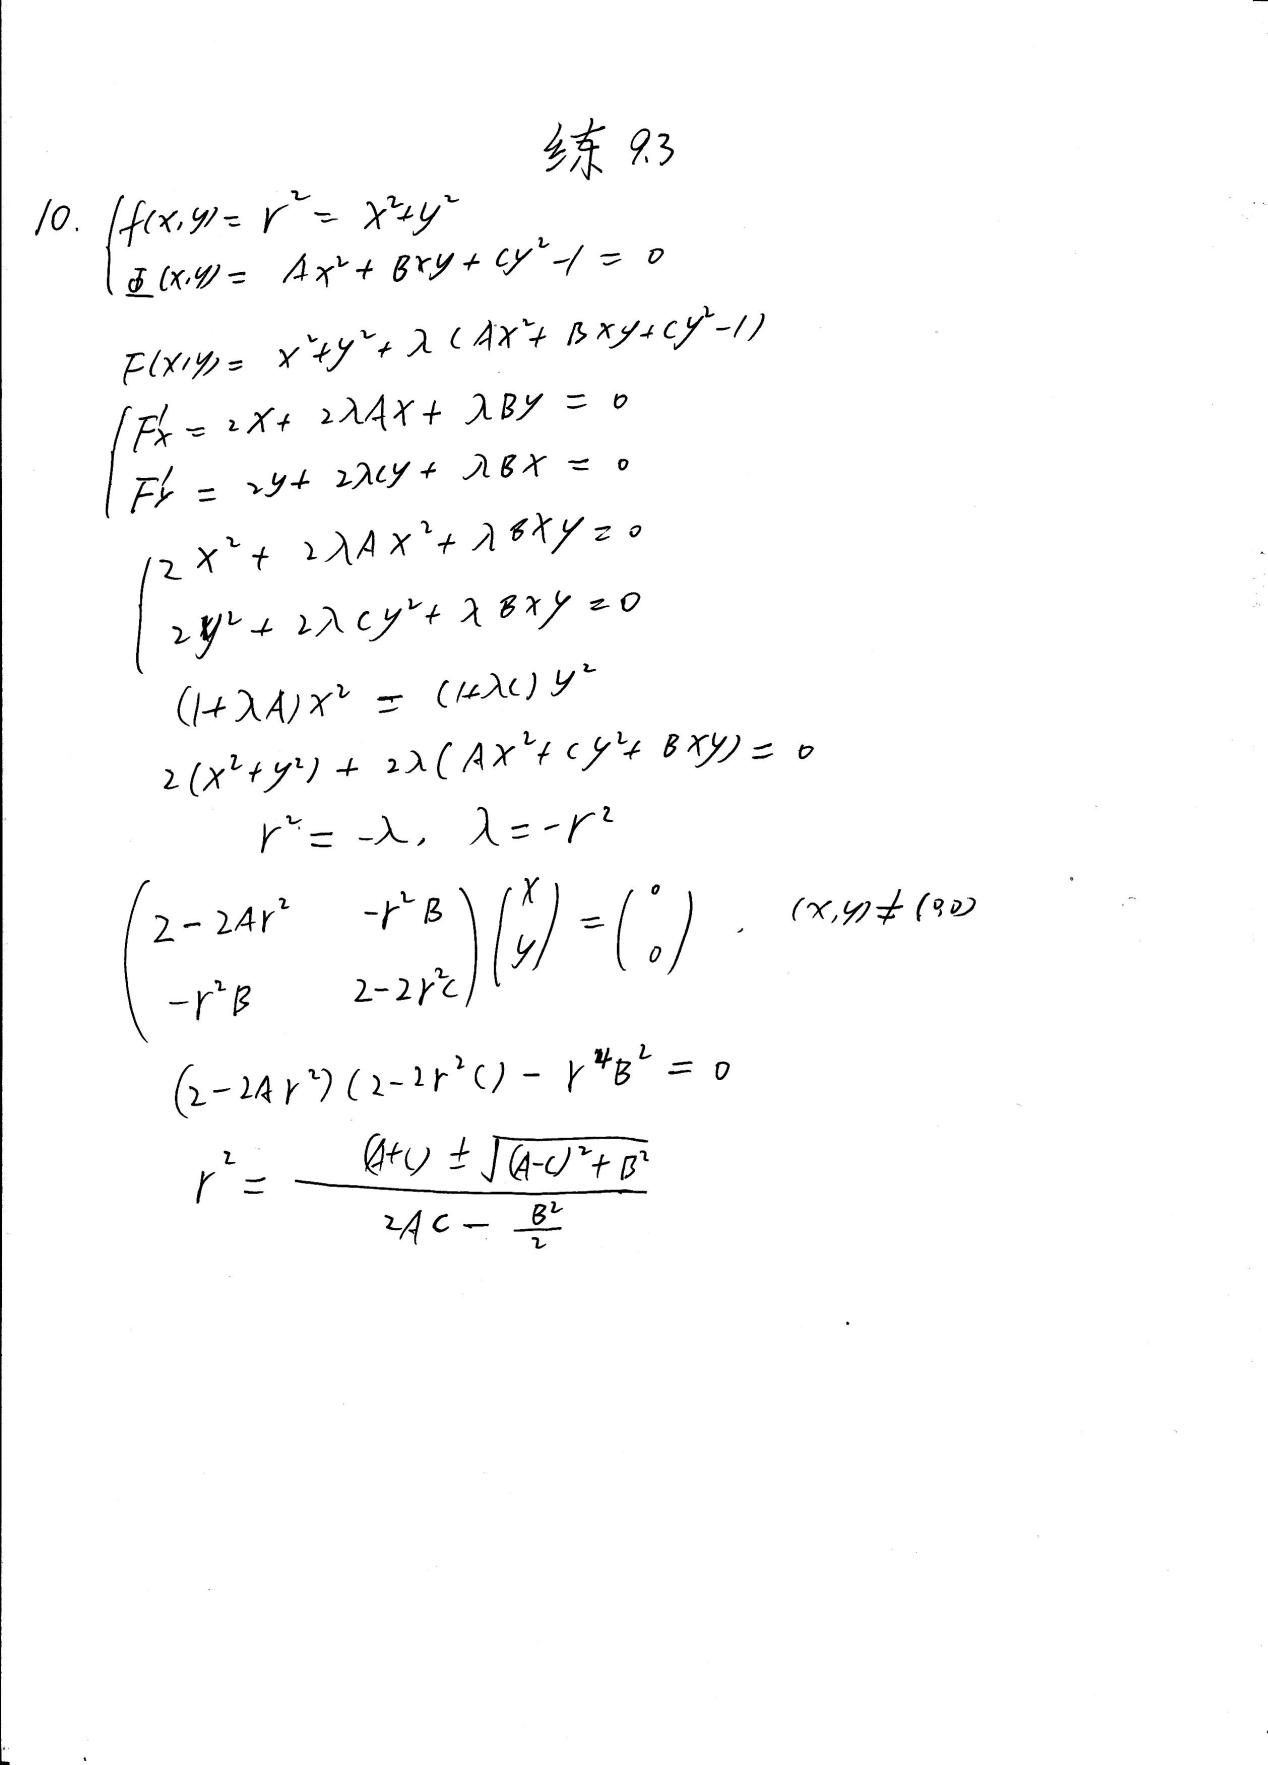 练 9.3
10. { f(x,y) = r² = x²+y²
Φ(x,y) = Ax² + Bxy + Cy² - 1 = 0
F(x,y) = x²+y² + λ(Ax² + Bxy + Cy² - 1)
{ F'x = 2x + 2λAx + λBy = 0
F'y = 2y + 2λCy + λBx = 0
{ 2x² + 2λAx² + λBxy = 0
2y² + 2λCy² + λBxy = 0
(1+λA)x² = (1+λC)y²
2(x²+y²) + 2λ(Ax² + Cy² + Bxy) = 0
r² = -λ, λ = -r²
(2-2Ar² -r²B) (x) = (0) . (x,y) ≠ (0,0)
(-r²B 2-2r²C) (y) (0)
(2-2Ar²)(2-2r²C) - r⁴B² = 0
r² = ((A+C) ± √((A-C)² + B²)) / (2AC - B²/2)